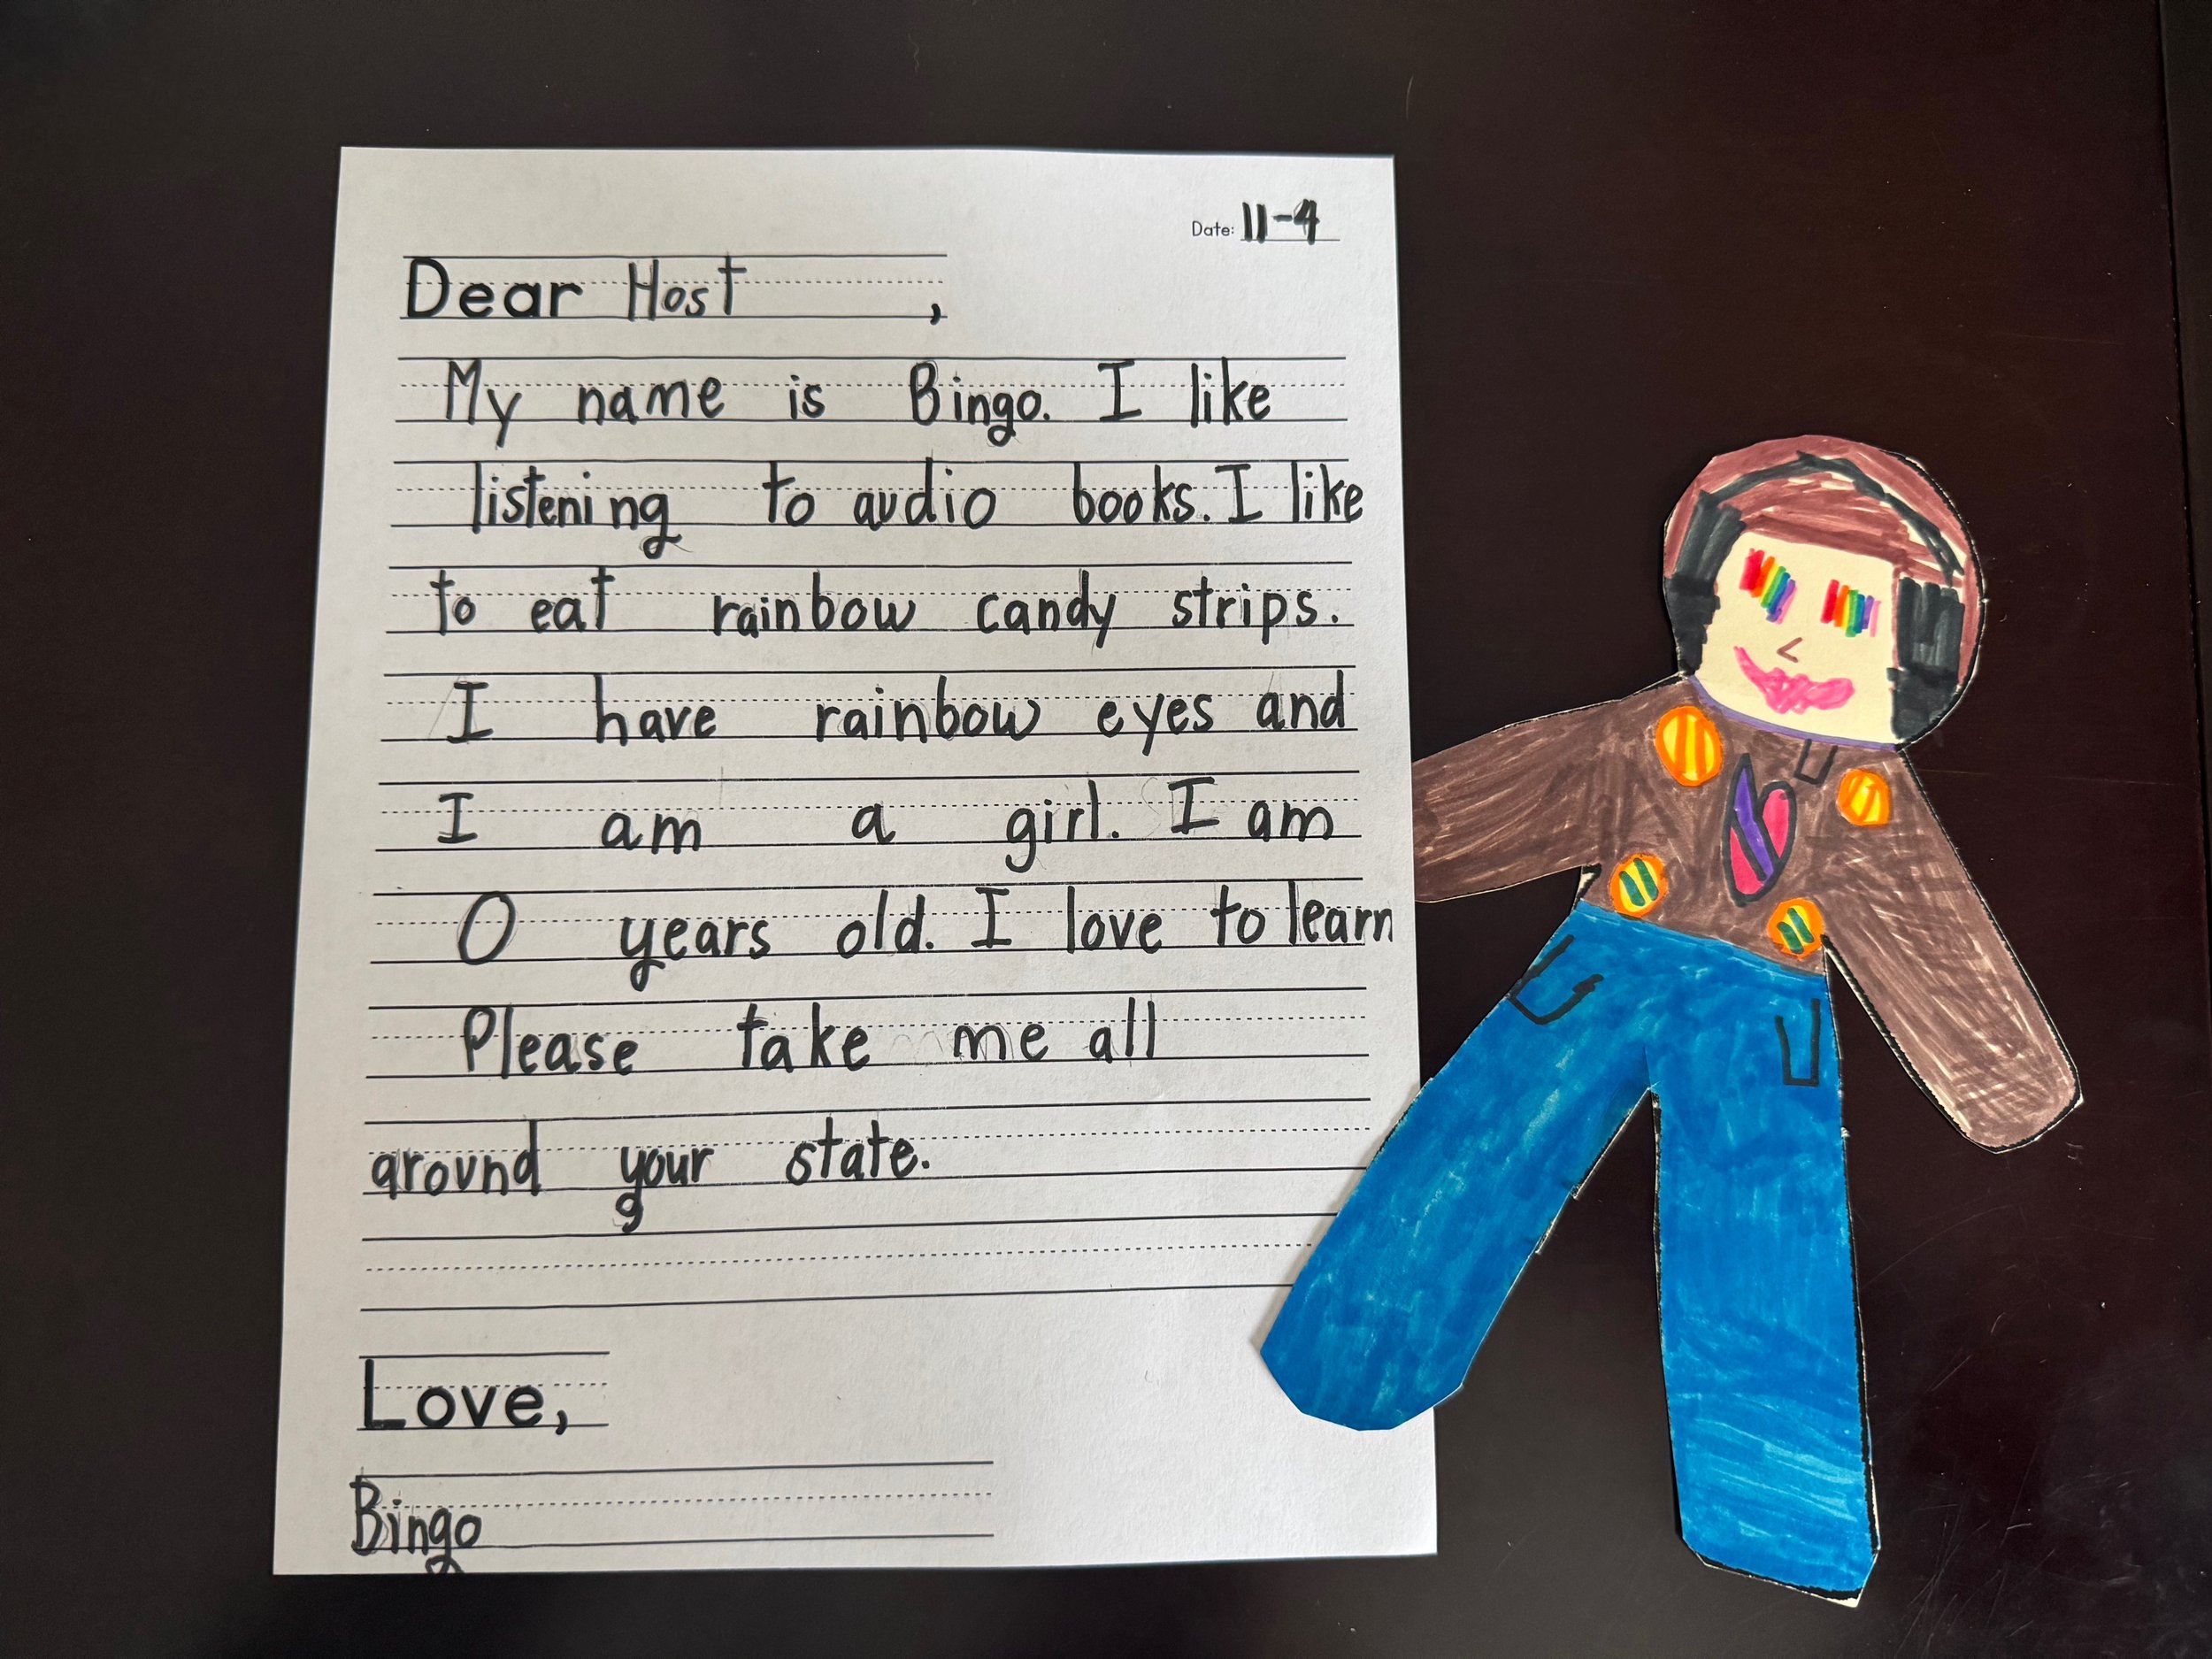 Date: 11-4
Dear Host ,
My name is Bingo. I like
listening to audio books. I like
to eat rainbow candy strips.
I have rainbow eyes and
I am a girl. I am
0 years old. I love to learn
Please take me all
around your state.
Love,
Bingo